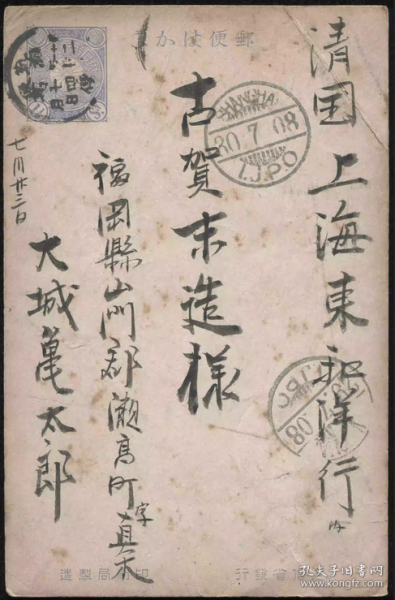 郵便はかき
清国上海東和洋行内
古賀末造様
福岡縣山門郡瀬高町字真木
大城亀太郎
七月廿三日
SHANGHAI
30.7.08
I.J.P.O
I.J.P.O
印刷局製造
孔夫子旧书网
kongfz.com